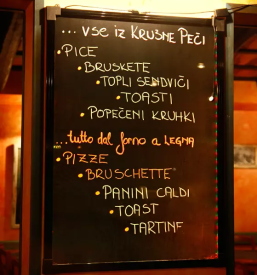 ... VSE IZ KRUŠNE PEČI
• PICE
• BRUSKETE
• TOPLI SENDVIČI
• TOASTI
• POPEČENI KRUHKI
...tutto dal forno a LEGNA
• PIZZE
• BRUSCHETTE
• PANINI CALDI
• TOAST
• TARTINE